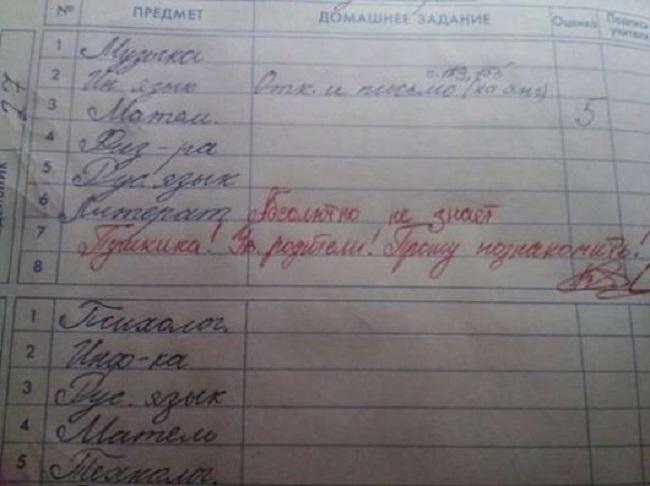 № ПРЕДМЕТ ДОМАШНЕЕ ЗАДАНИЕ Оценка Подпись учителя
1 Музыка
с. 153, 155
2 Ин. язык Отк. и письмо (на анг)
3 Матем. 5
4 Физ-ра
5 Рус. язык
6 Литерат. Абсолютно не знает
7 Пушкина! Ув. родители! Прошу познакомить!
8
1 Психолог.
2 Инф-ка
3 Рус. язык
4 Матем
5 Технолог.
27